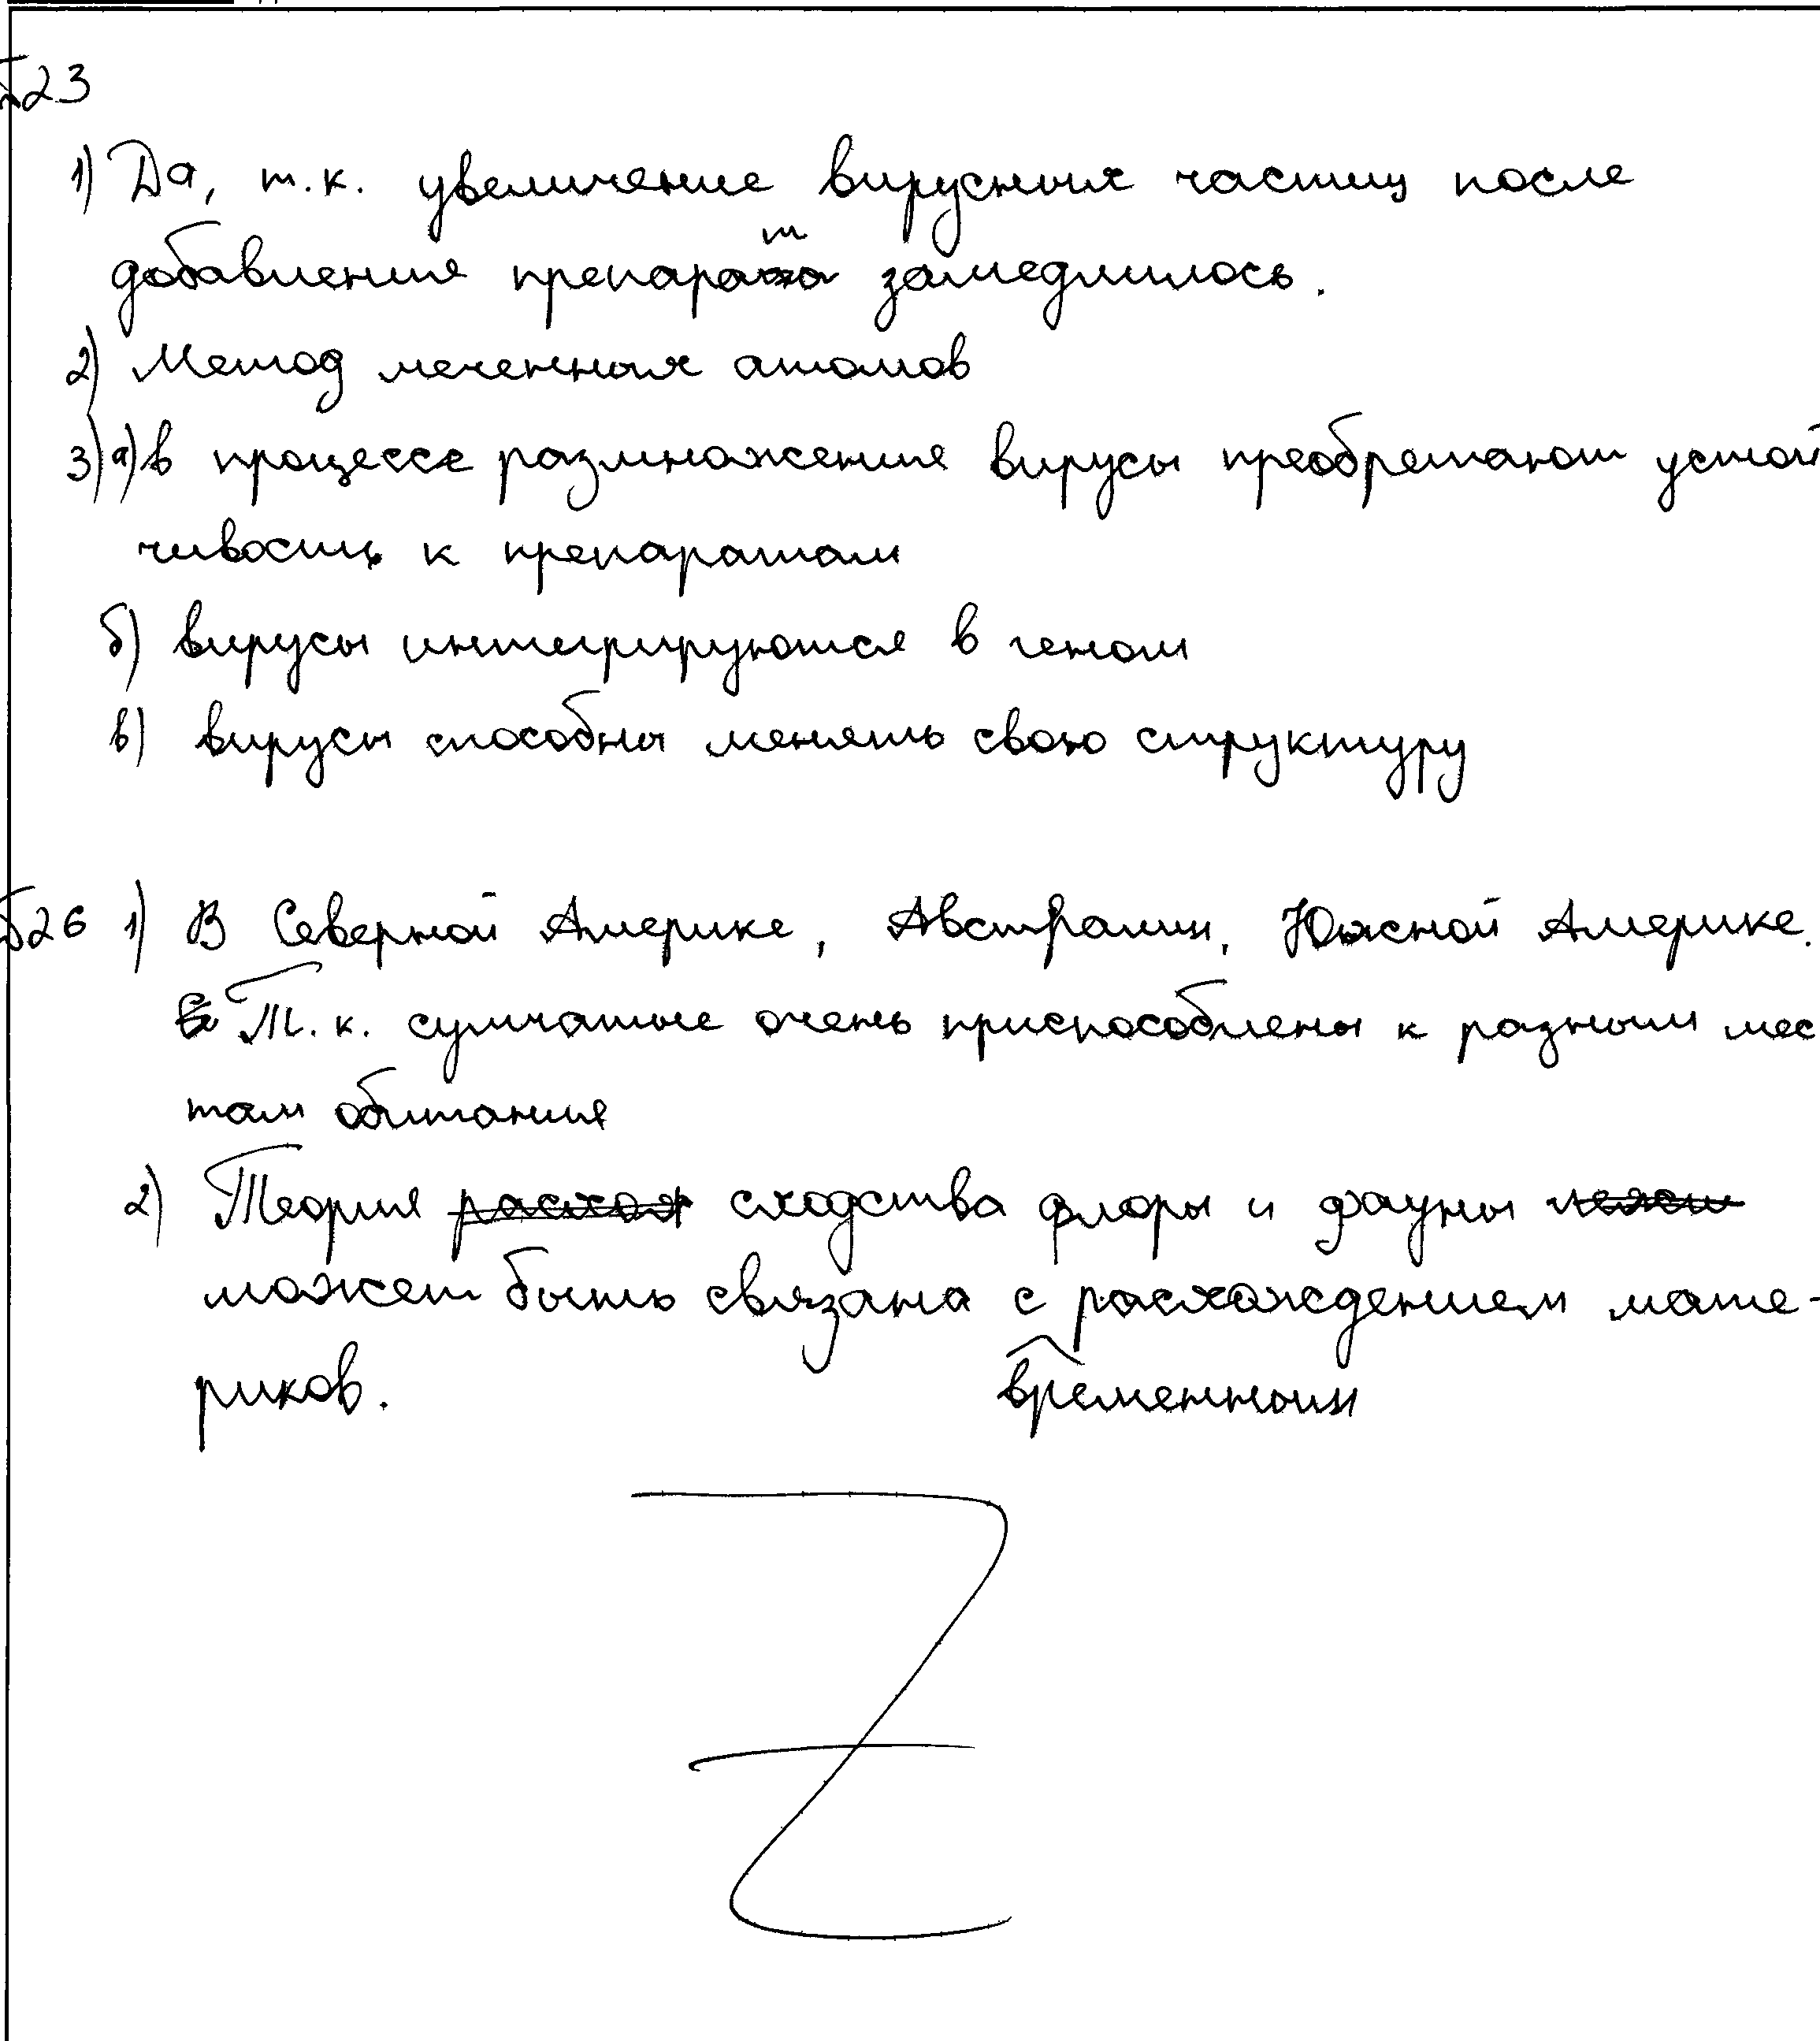 №23
1) Да, т.к. увеличение вирусных частиц после
добавления препарата замедлилось.
2) Метод меченных атомов
3) а) в процессе размножения вирусы преобретают устой
чивость к препаратам
б) вирусы интегрируются в геном
в) вирусы способны менять свою структуру
№26 1) В Северной Америке, Австралии, Южной Америке.
Т.к. сумчатые очень приспособлены к разным мес
там обитания
2) Теория сходства флоры и фауны
может быть связана с расхождением мате-
риков. временным